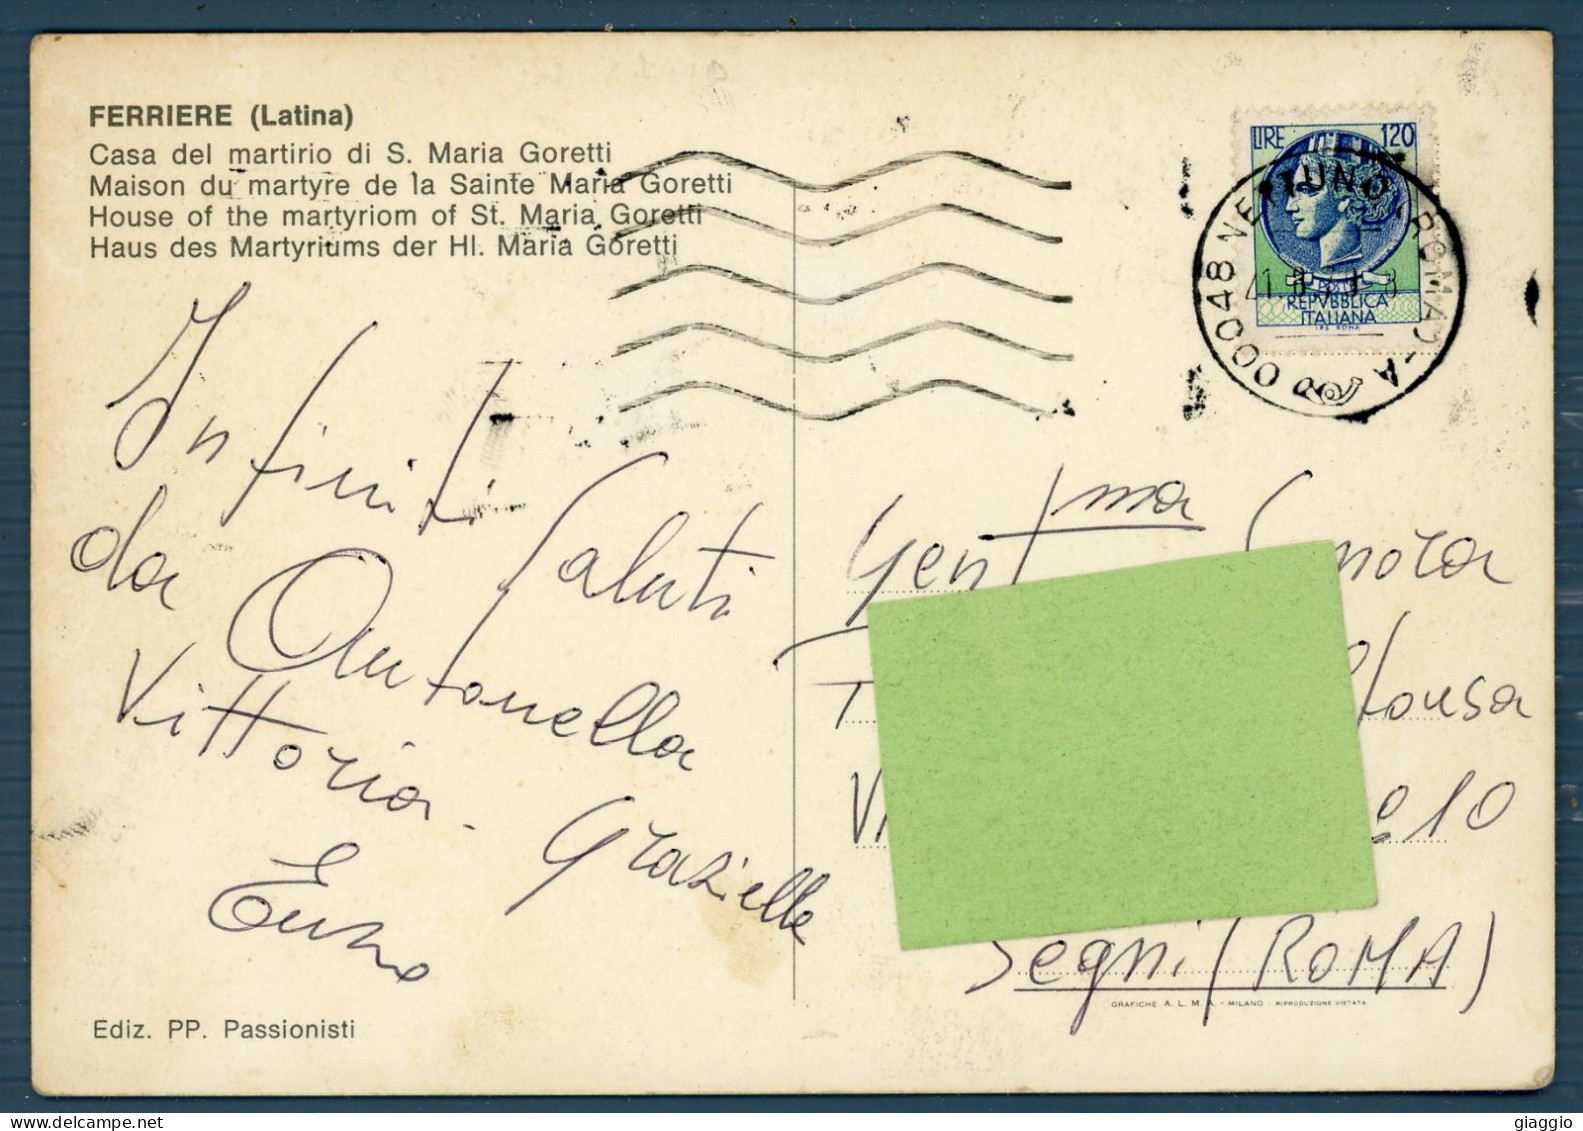 FERRIERE (Latina)
Casa del martirio di S. Maria Goretti
Maison du martyre de la Sainte Maria Goretti
House of the martyriom of St. Maria Goretti
Haus des Martyriums der Hl. Maria Goretti
LIRE 120
REPVBBLICA
ITALIANA
I.P.S. ROMA
00048 NETTUNO (ROMA) - A
Infiniti Saluti
da Antonella
Vittoria - Graziella
Enzo
Gent.ma
Segni (ROMA)
GRAFICHE A. L. M. A. - MILANO - RIPRODUZIONE VIETATA
Ediz. PP. Passionisti
giaggio